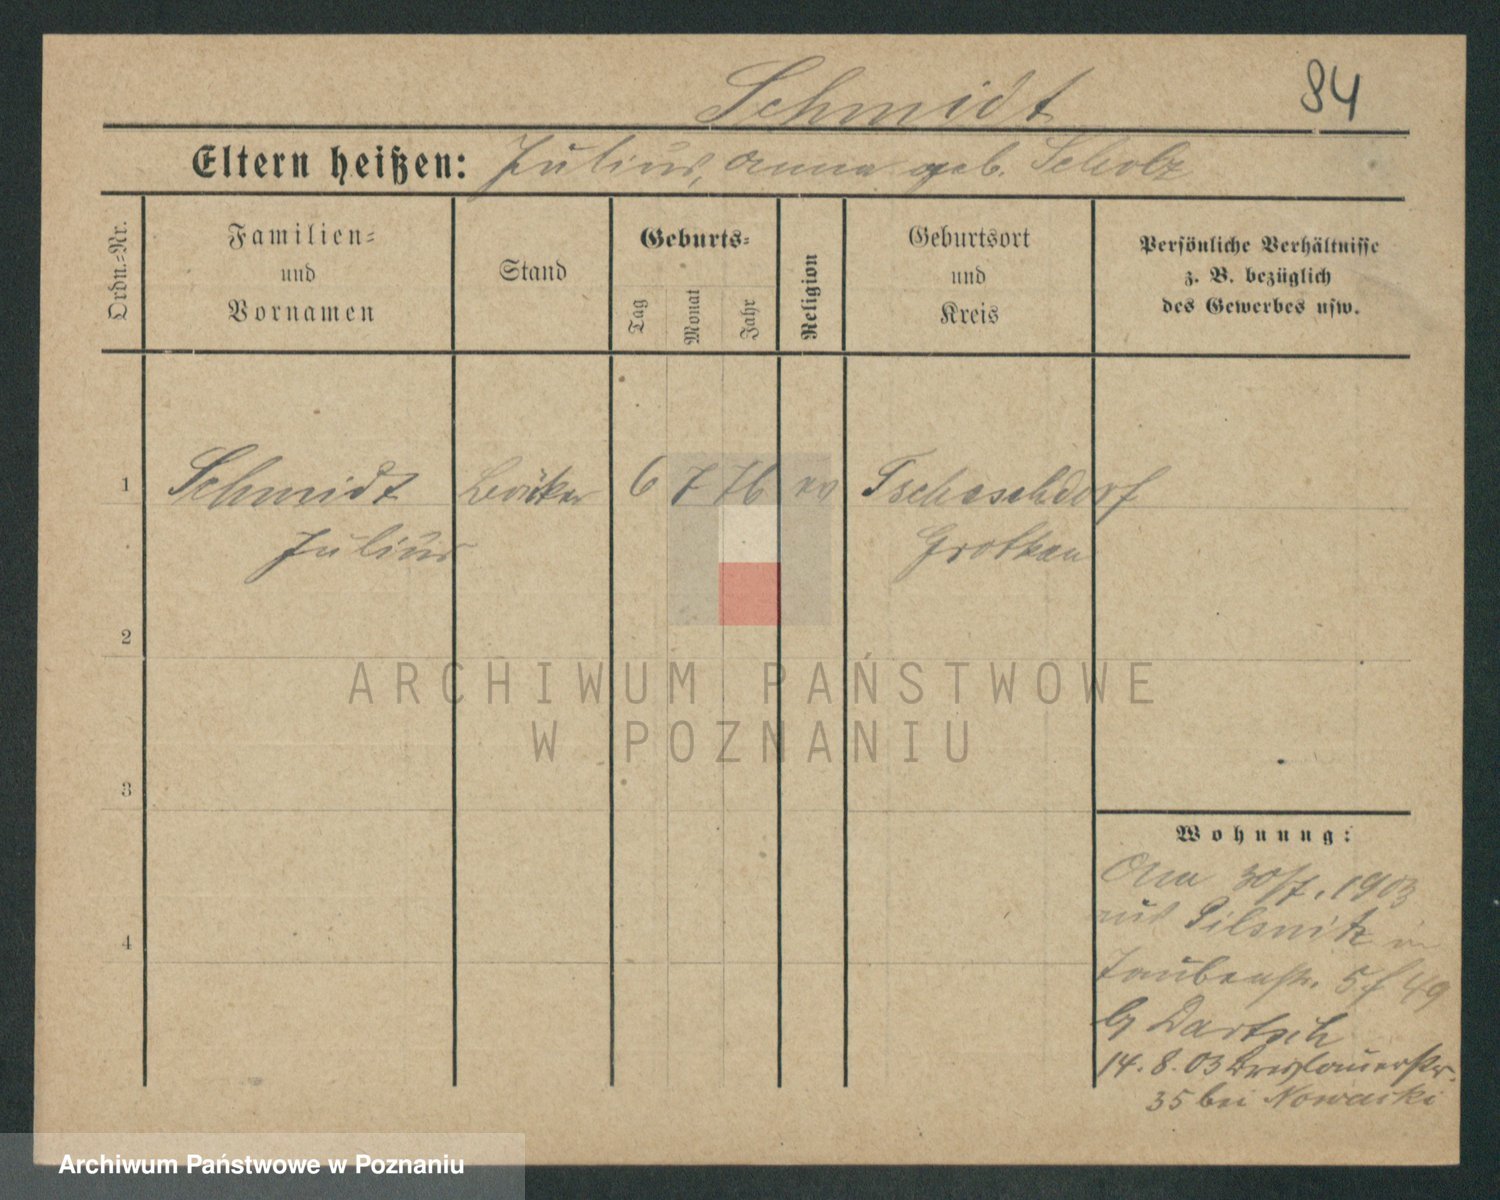 Schmidt
84
Eltern heißen: Julius, Anna geb. Scholz
Ordn.-Nr.
Familien-
und
Vornamen
Stand
Geburts-
Tag
Monat
Jahr
Religion
Geburtsort
und
Kreis
Persönliche Verhältnisse
z. B. bezüglich
des Gewerbes usw.
1
Schmidt Bäcker 6 7 76 ev Tscheschdorf
Julius Grottkau
2
ARCHIWUM PAŃSTWOWE
W POZNANIU
3
Wohnung:
Am 30/7. 1903
aus Pilsnitz in
Taubenstr. 5
4
b/ Bartsch
14. 8. 03 Breslauerstr.
35 bei Nowacki
Archiwum Państwowe w Poznaniu